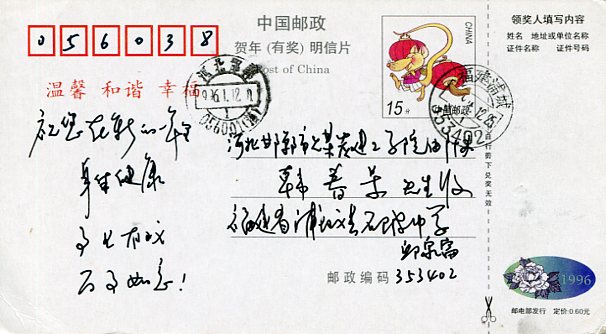 056038
中国邮政
贺年(有奖)明信片
Post of China
CHINA
15分
中国邮政
领奖人填写内容
姓名 地址或单位名称
证件名称 证件号码
温馨 和谐 幸福
河北邯郸
96.1.12.
056001
福建浦城
353402
祝您在新的一年里
身体健康
万事如意!
河北邯郸市
韩春 先生收
福建省浦城县 中学
邮政编码 353402
自行剪下兑奖无效
1996
邮电部发行 定价:0.60元